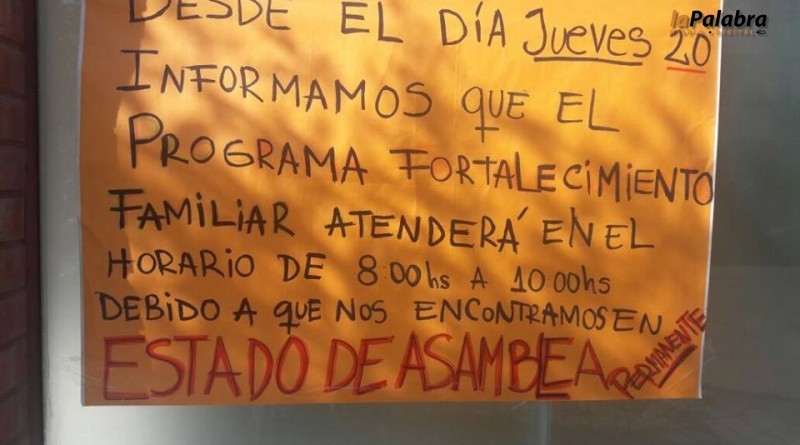 laPalabra
DIGITAL
DESDE EL DÍA JUEVES 20
INFORMAMOS QUE EL
PROGRAMA FORTALECIMIENTO
FAMILIAR ATENDERÁ EN EL
HORARIO DE 8:00hs A 10:00hs
DEBIDO A QUE NOS ENCONTRAMOS EN
ESTADO DE ASAMBLEA PERMANENTE